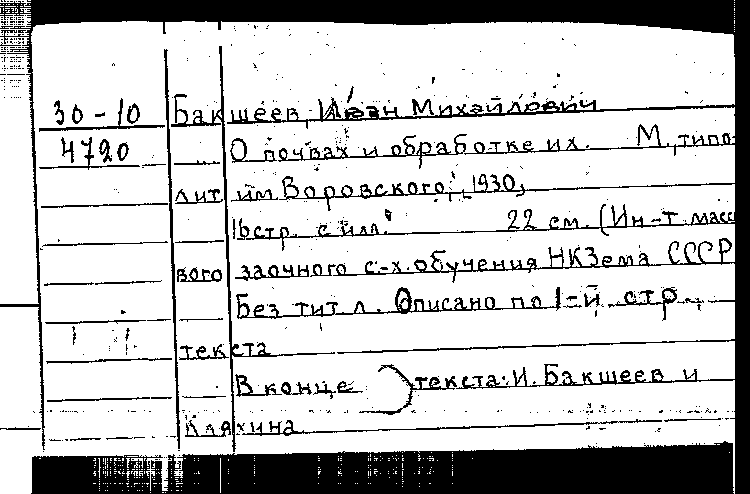 30-10 Бакшеев, Иван Михайлович
4720 О почвах и обработке их. М., типо-
лит. им. Воровского, 1930,
16 стр. с илл. 22 см. (Ин-т массо
вого заочного с-х. обучения НКЗема СССР
Без тит. л. Описано по 1-й стр.
текста
В конце текста: И. Бакшеев и
Кляхина